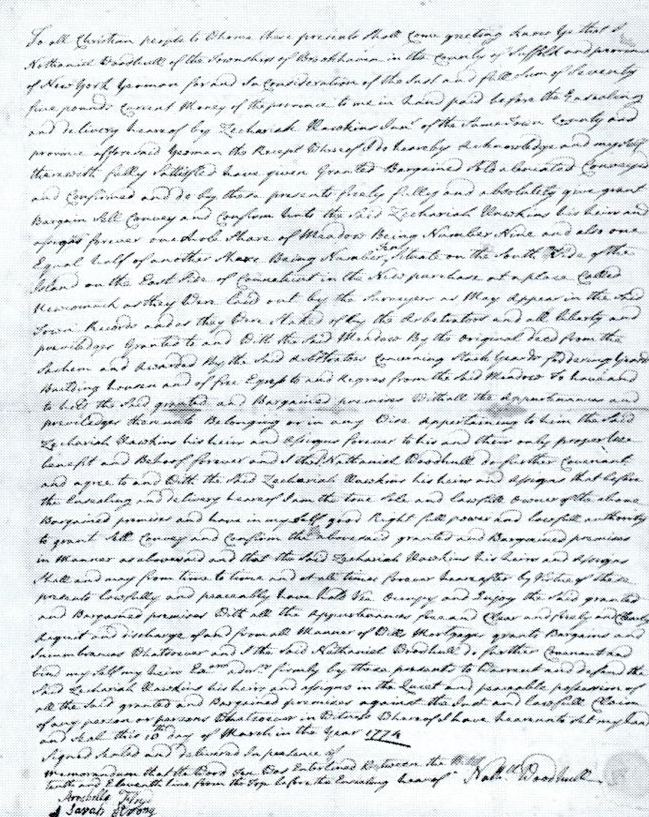 To all Christian people to Whome these presents Shall Come greeting Know Ye that I
Nathaniel Woodhull of the Township of Brookhaven in the County of Suffolk and province
of New York Yeoman for and In Consideration of the Just and full Sum of Seventy
five pounds Current Money of the province to me in hand paid before the Ensealing
and delivery hereof by Zechariah Hawkins Junr of the Same Town County and
province afforesaid Yeoman the Receipt Whereof I do hereby Acknowledge and myself
therewith fully Sattisfied have given Granted Bargained Sold alienated Conveyed
and Confirmed and do by these presents freely fully and absolutely give grant
Bargain Sell Convey and Confirm Unto the Said Zechariah Hawkins his heirs and
assigns forever one whole Share of Meadow Being Number Nine and also one
Equal half of another Share Being Number Ten Situate on the South Side of the
Island on the East Side of Connecticut in the New purchase at a place Called
as they Were laid out by the Surveyers as May Appear in the Said
Town Records and as they Were Staked of by the Arbetrators and all liberty and
priviledges Granted to and With the Said Meadow By the original deed from the
Sachem and Awarded By the Said Arbitrators Concerning Stack Yards foddering Yards
Building houses and of free Egress and Regress from the Said Meadow To have and
to hold the Said granted and Bargained premises With all the Appurtenances and
priviledges thereunto Belonging or in any Wise Appertaining to him the Said
Zechariah Hawkins his heirs and Assigns forever to his and their only proper Use
benefit and Behoof forever and I the Said Nathaniel Woodhull do further Covenant
and agree to and With the Said Zechariah Hawkins his heirs and Assigns that before
the Ensealing and delivery hereof I am the true Sole and lawfull Owner of the above
Bargained premises and have in my Self good Right full power and lawfull authority
to grant Sell Convey and Confirm the above said granted and Bargained premises
in Manner as abovesaid and that the Said Zechariah Hawkins his heirs and Assigns
Shall and may from time to time and at all times forever hereafter by Virtue of these
presents lawfully and peaceably have hold Use Occupy and Enjoy the Said granted
and Bargained premises With all the Appurtenances free and Clear and freely and Clearly
Acquit and discharge of and from all Manner of Wills Mortgages grants Bargains and
Incumbrances Whatsoever and I the Said Nathaniel Woodhull do further Covenant and
bind my Self my heirs firmly by these presents to Warrent and defend the
Said Zechariah Hawkins his heirs and assigns in the Quiet and peaceable possession of
all the Said granted and Bargained premises against the Just and lawfull Claim
of any person or persons Whatsoever in Witness Whereof I have hereunto Set my hand
and Seal this 10th day of March in the Year 1774
Signed Sealed and delivered In presence of
Memorandum that the Word Ten Was Enterlined Between the
tenth and Eleventh line from the Top before the Ensealing hereof Nathll Woodhull
Sarah Strong